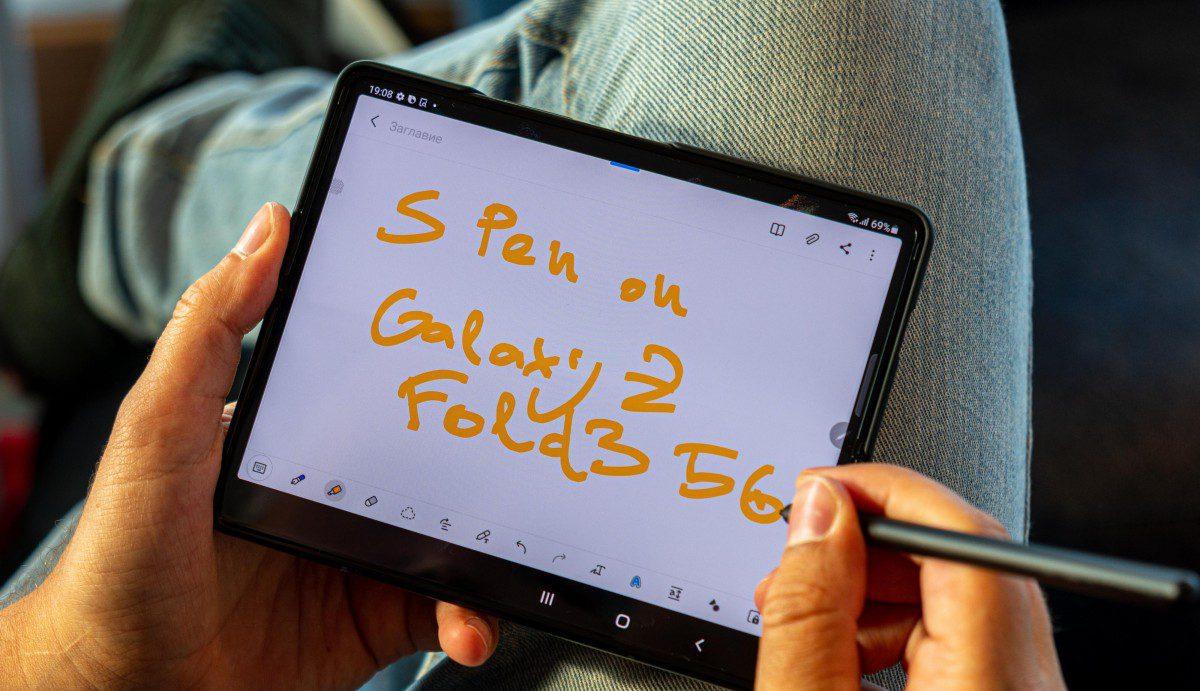 19:08
69%
Заглавие
S Pen on
Galaxy Z
Fold3 5G